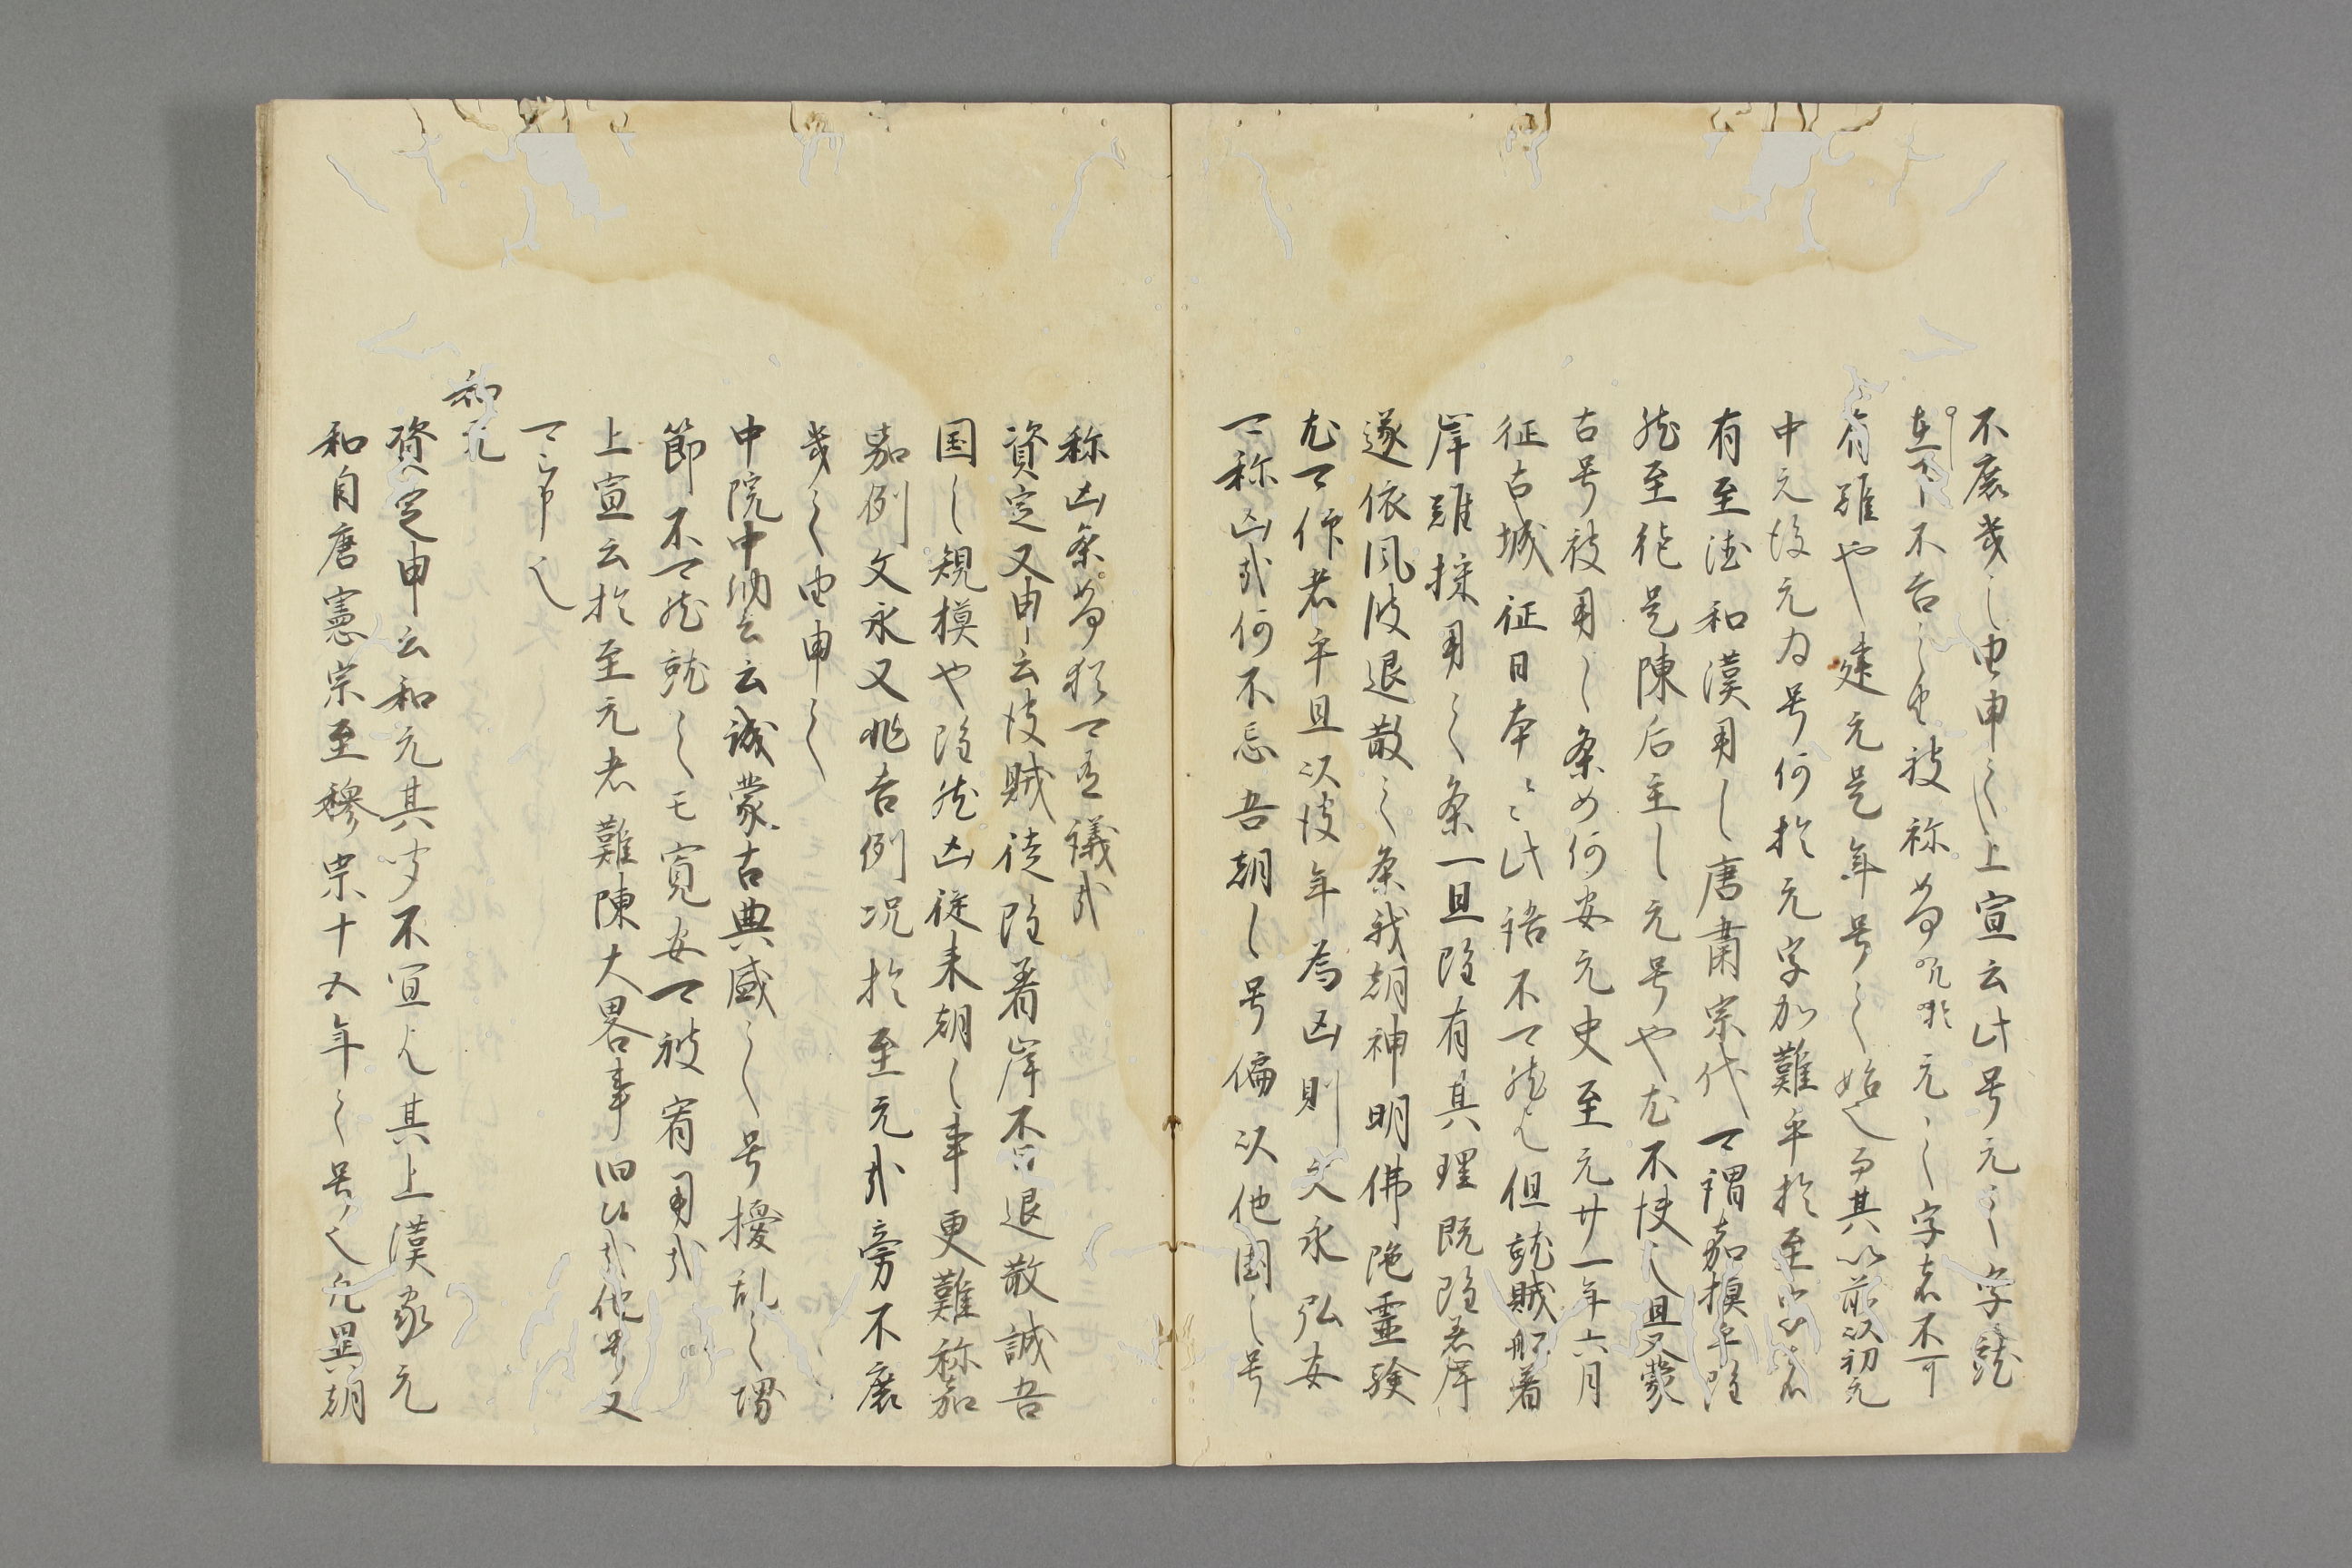 不庶幾之由申之上宣云此号元之字就
在下不吉之由被称為 元之字者不可
有難也建元是年号之始也而其以前以初元
中元後元為号何於元字加難乎於至字者
有至徳和漢用之唐粛宗代可謂嘉模乎隨
然至徳是陳后主之元号也尤不快之且又蒙
古号被用之条如何安元史至元廿一年六月
征古城征日本云々此語不可然也但就賊船着
岸難採用之条一旦隨有其理既隨着岸
遂依風波退散之条我朝神明佛陀霊験
尤可仰者乎且以彼年為凶則文永弘安
可称凶哉何不忌吾朝之号偏以他国之号
称凶条為 可有議哉
資定又申云彼賊徒隨着岸不日退散誠吾
国之規模也隨然凶徒来朝之事更難称加
嘉例文永又非吉例況於至元哉旁不庶
幾之由申之
中院中納言云誠蒙古典盛之号擾乱之堺
節不可然就之モ寛安可被宥用哉
上宣云於至元者難陳大畧事旧候哉他号又
可 申也
和元
資定申云和元其 不宜也其上漢家元
和自唐憲宗至穆宗十五年之号也凡異朝